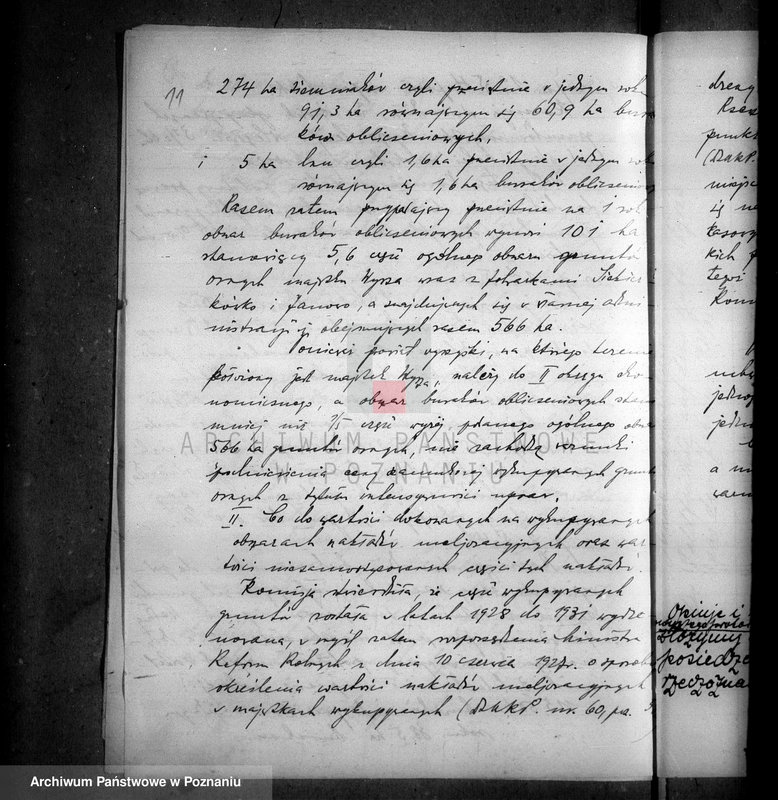 11
274 ha ziemniaków czyli przeciętnie w jednym roku
91,3 ha równającym się 60,9 ha bura-
ków obliczeniowych,
i 5 ha lnu czyli 1,6 ha przeciętnie w jednym roku
równającym się 1,6 ha buraków obliczeniow
Razem zatem przypadający przeciętnie na 1 rok
obszar buraków obliczeniowych wynosi 101 ha
stanowiący 5,6 część ogólnego obszaru gruntów
ornych majątku wraz z folwarkami
i Janowo, a znajdujących się w własnej admi-
nistracji i obejmujących razem 566 ha.
Ponieważ powiat wyrzyski, na którego terenie
położony jest majątek, należy do II okręgu eko-
nomicznego, a obszar buraków obliczeniowych stanowi
mniej niż 1/5 część wyżej podanego ogólnego obsz
566 ha gruntów ornych, nie zachodzą warunki
podwyższenia ceny szacunkowej wykupywanych gruntów
ornych z tytułu intensywności upraw.
II. Co do wartości dokonanych na wykupywanych
obszarach nakładów meljoracyjnych oraz war-
tości niezamortyzowanych części tych nakładów.
Komisja stwierdziła, że część wykupywanych
gruntów została w latach 1928 do 1931 wydre-
nowana, w myśl zatem rozporządzenia Ministra
Reform Rolnych z dnia 10 czerwca 1927r. o sposobie
określenia wartości nakładów meljoracyjnych
w majątkach wykupywanych (Dz.U.R.P. nr. 60, poz.
dreny
punkt
(Dz.U.R.P.
miejsc
się
kich
tegoż
jednego
a
Opinję i
złożymy
posiedze
ARCHIWUM PAŃSTWOWE
W POZNANIU
Archiwum Państwowe w Poznaniu